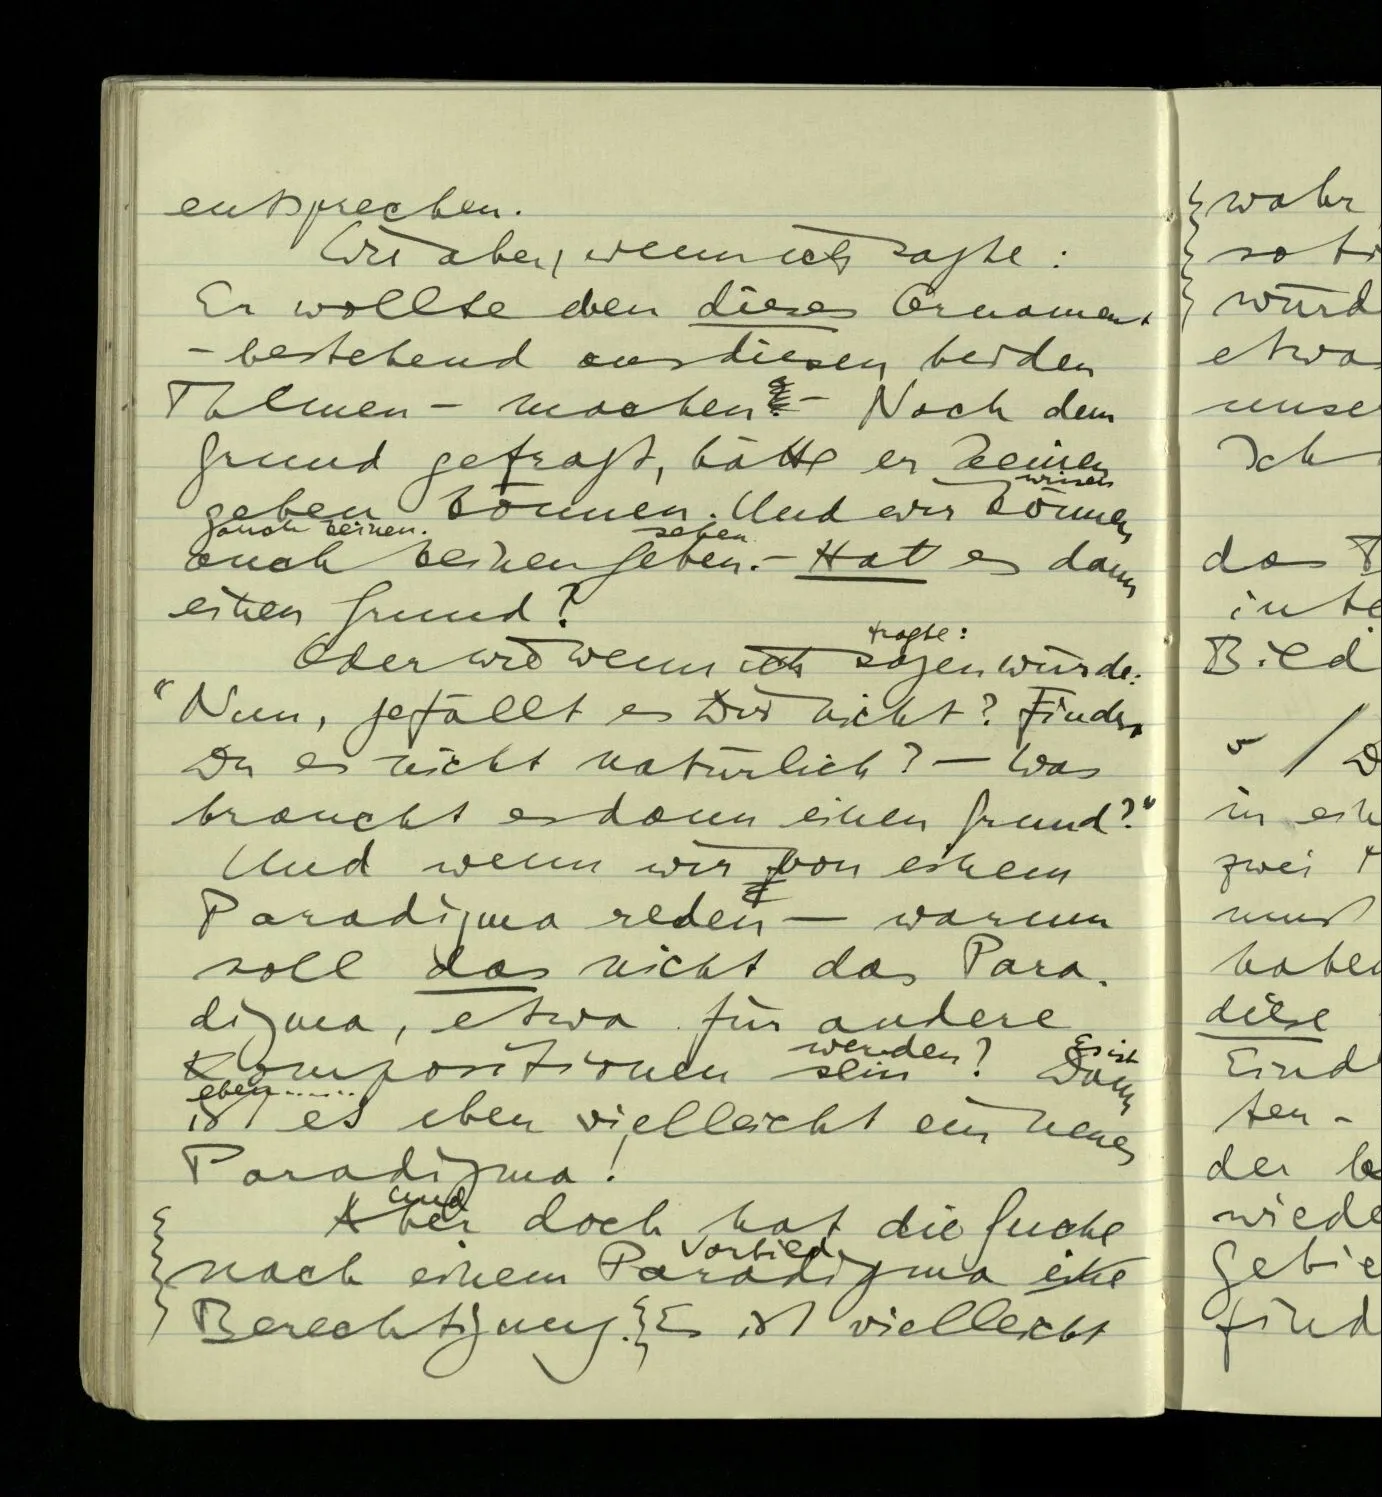 entsprechen.
Wie aber, wenn ich sagte:
Er wollte eben dieses Ornament
– bestehend aus diesen beiden
Themen – machen. – Nach dem
Grund gefragt, hätte er keinen
wissen
geben können. Und wir können
auch keinen. sehen
auch keinen geben. – Hat es dann
einen Grund?
fragte:
Oder wie wenn ich sagen würde:
"Nun, gefällt es Dir nicht? Findest
Du es nicht natürlich? – Was
braucht es dann einen Grund?"
Und wenn wir von einem
Paradigma reden – warum
soll das nicht das Para-
digma, etwa für andere
werden? Es ist
Kompositionen sein? Dann
eben......
ist es eben vielleicht ein neues
Paradigma!
und
Aber doch hat die Suche
Vorbild
nach einem Paradigma eine
Berechtigung. Es ist vielleicht
wahr
würd
etwa
unse
Ich
das
inte
Bild
in ein
zwei
muß
haben
diese
Eind
ten –
der b
wiede
Gebie
find